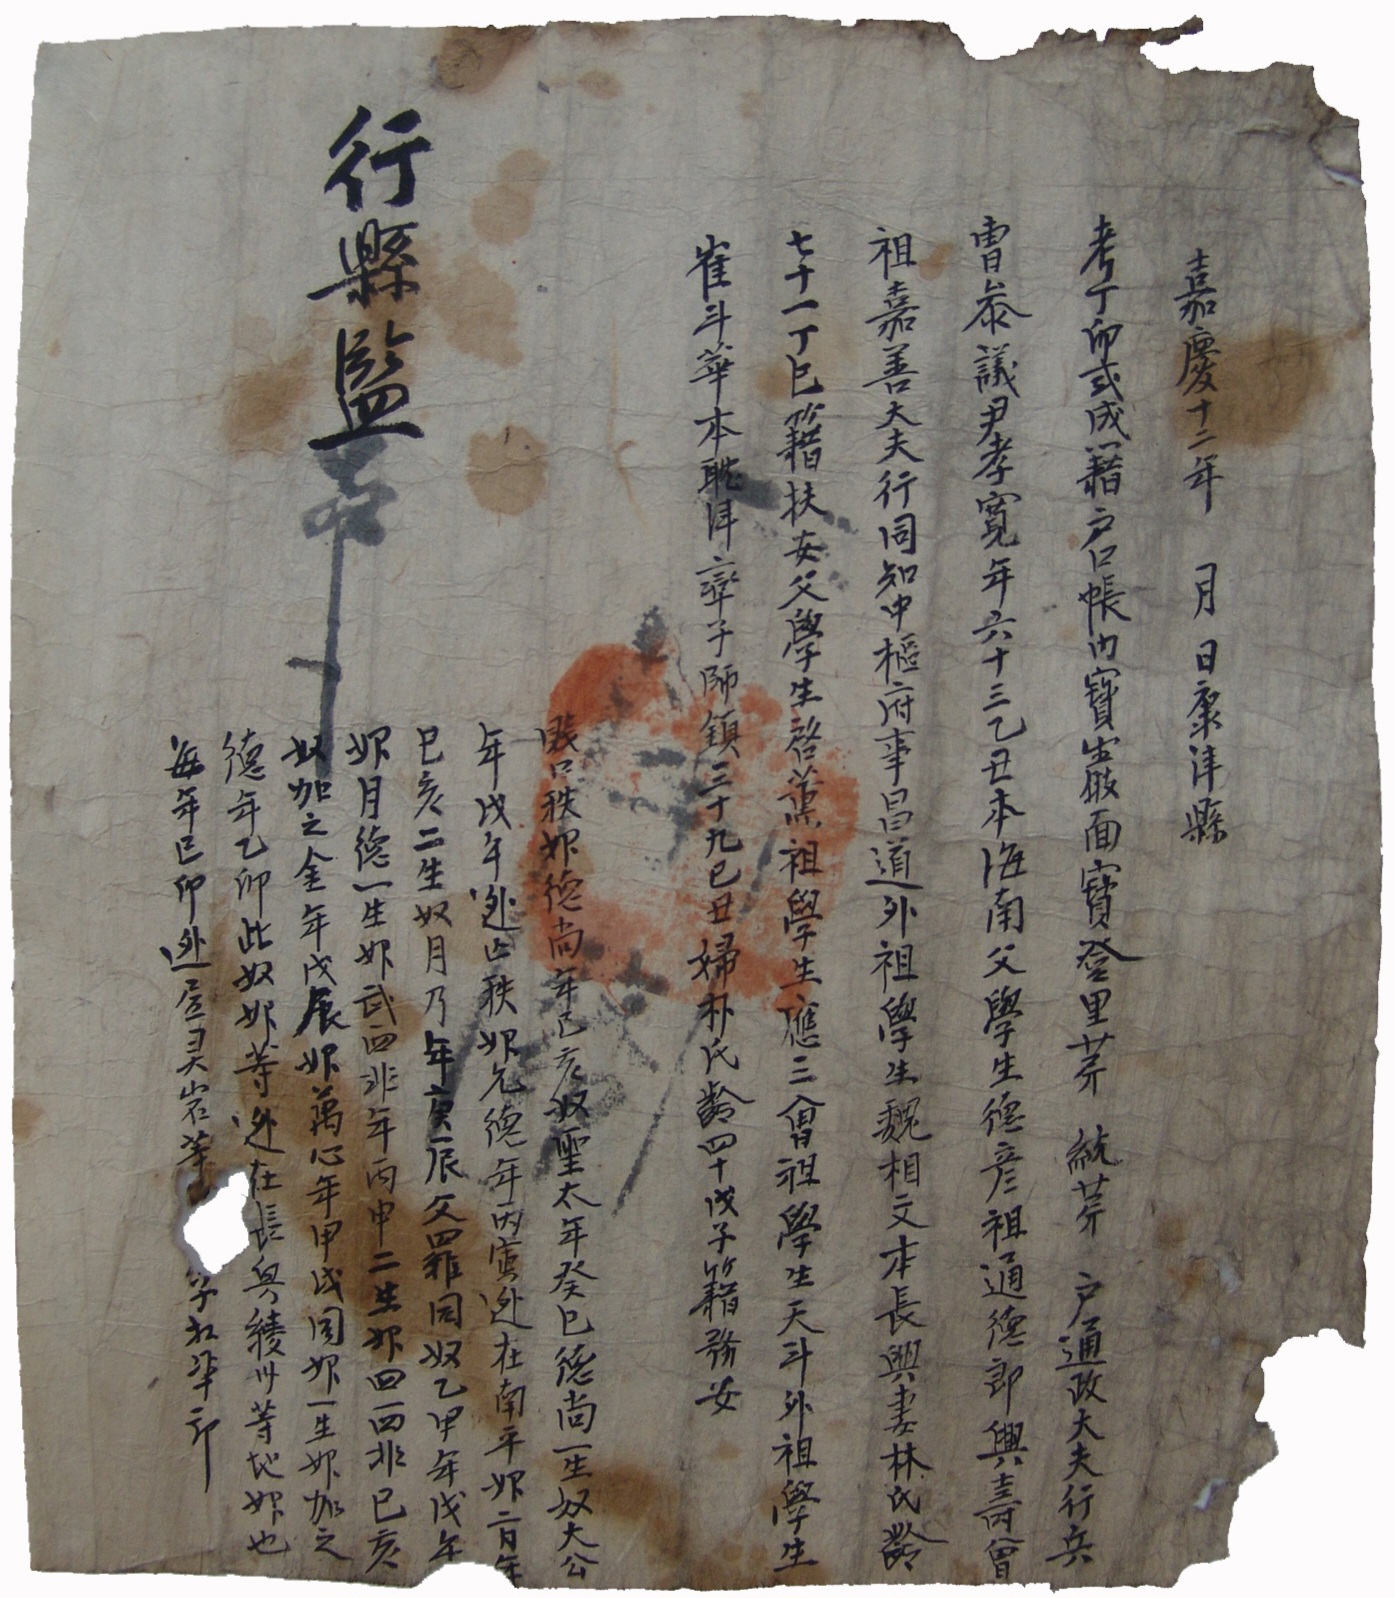 嘉慶十二年 月 日康津縣
考丁卯式成籍戶口帳內寶巖面寶登里苐 統苐 戶通政大夫行兵
曺叅議尹孝寬年六十三乙丑本海南父學生德彦祖通德郎興壽曾
祖嘉善大夫行同知中樞府事昌道外祖學生魏相文本長興妻林氏齡
七十一丁巳籍扶安父學生啓薰祖學生應三曾祖學生天斗外祖學生
崔斗華本耽津率子師鎮三十九己丑婦朴氏齡四十戊子籍務安
賤口秩婢德尚年己亥奴聖太年癸巳德尚一生奴大公
年戊午逃亡秩婢允德年丙寅逃在南平婢二月年
己亥二生奴月乃年庚辰父罪同奴乙甲年戊午
婢月德一生婢武四非年丙申二生婢四四非己亥
奴加之金年戊辰婢萬心年甲戌同婢一生婢加之
德年乙卯此奴婢等逃在長興綾州等地婢也
每年己卯逃居灵岩等
行縣監